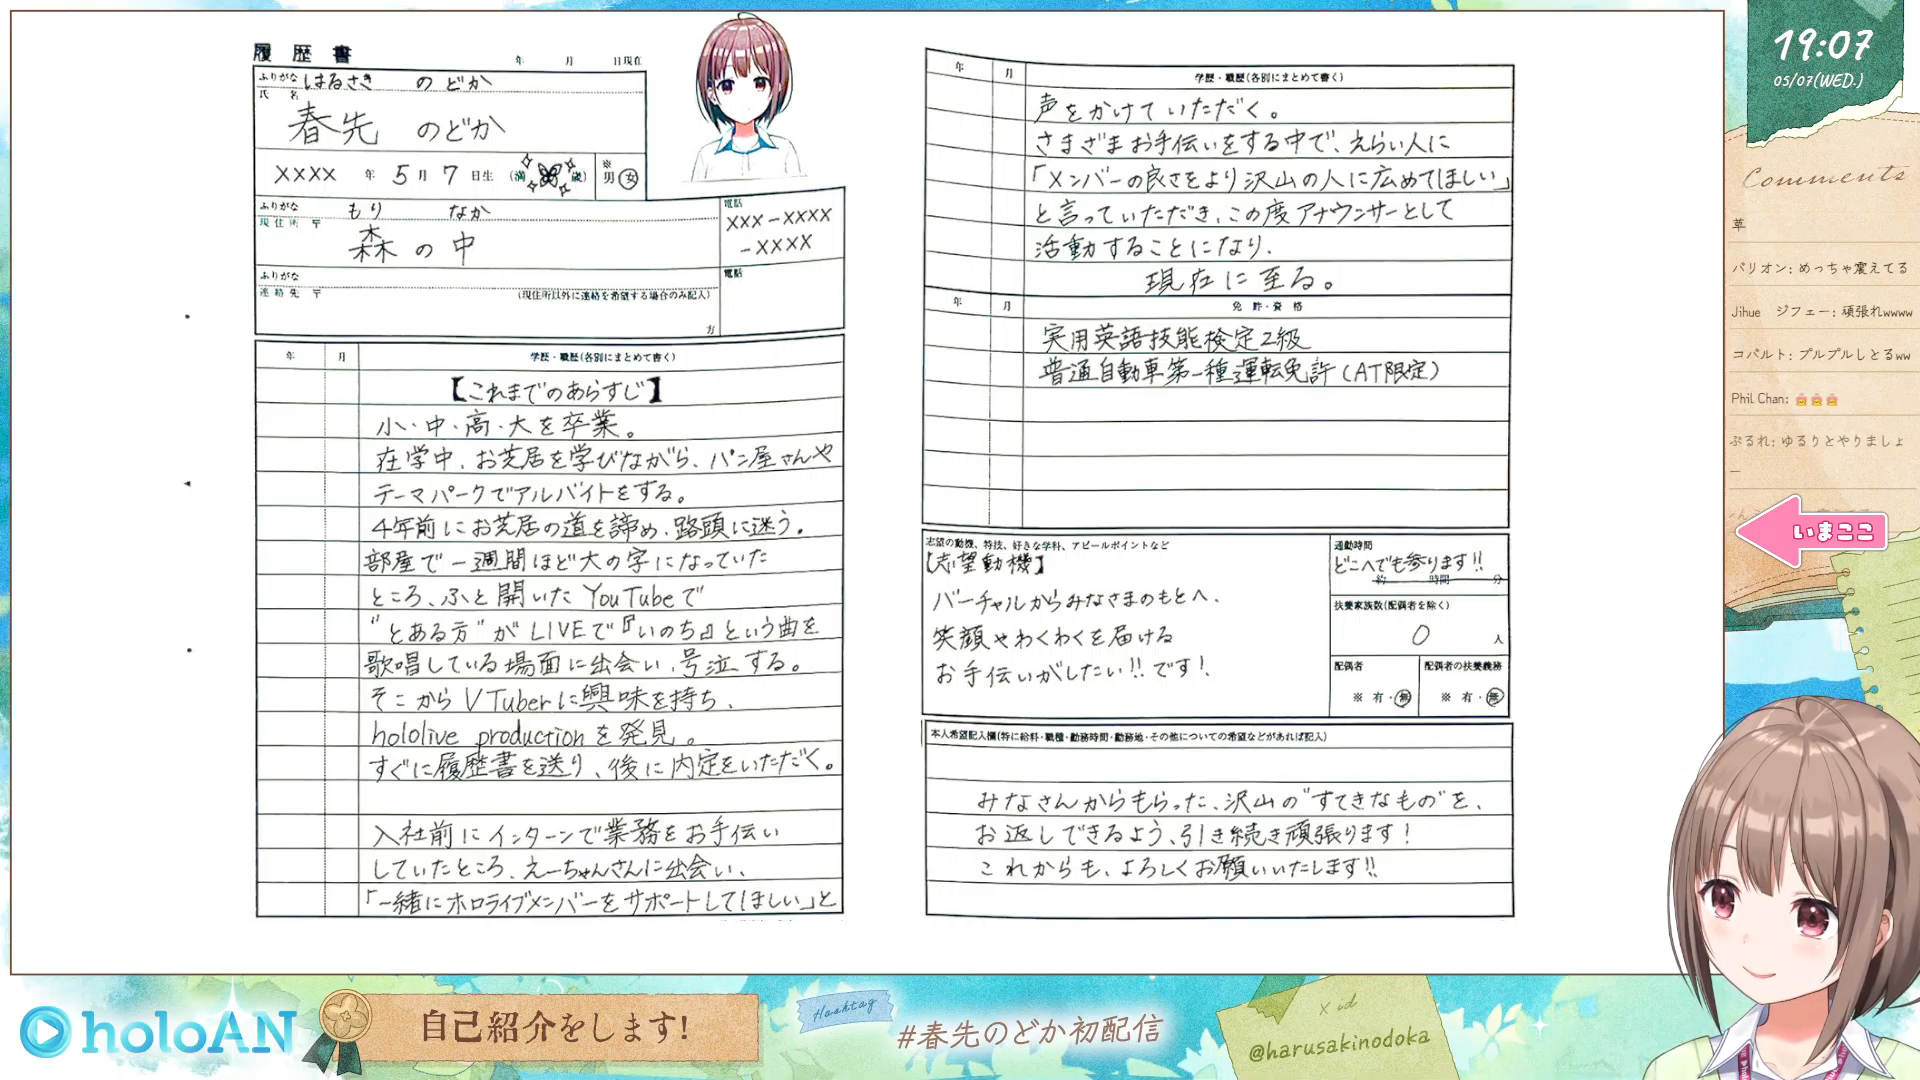 履歴書
年 月 日現在
ふりがな はるさき のどか
氏 名
春先 のどか
XXXX 年 5月 7日生 (満 歳) ※ 男 女
ふりがな もり なか
現住所 〒
森の中
電話
XXX-XXXX
-XXXX
ふりがな
連絡先 〒 (現住所以外に連絡を希望する場合のみ記入)
方
電話
年 月 学歴・職歴(各別にまとめて書く)
【これまでのあらすじ】
小・中・高・大を卒業。
在学中、お芝居を学びながら、パン屋さんや
テーマパークでアルバイトをする。
4年前にお芝居の道を諦め、路頭に迷う。
部屋で一週間ほど大の字になっていた
ところ、ふと開いたYouTubeで
"とある方"がLIVEで『いのち』という曲を
歌唱している場面に出会い、号泣する。
そこからVTuberに興味を持ち、
hololive productionを発見。
すぐに履歴書を送り、後に内定をいただく。
入社前にインターンで業務をお手伝い
していたところ、えーちゃんさんに出会い、
「一緒にホロライブメンバーをサポートしてほしい」と
年 月 学歴・職歴(各別にまとめて書く)
声をかけていただく。
さまざまお手伝いをする中で、えらい人に
「メンバーの良さをより沢山の人に広めてほしい」
と言っていただき、この度アナウンサーとして
活動することになり、
現在に至る。
年 月 免許・資格
実用英語技能検定2級
普通自動車第一種運転免許(AT限定)
志望の動機、特技、好きな学科、アピールポイントなど
【志望動機】
バーチャルからみなさまのもとへ、
笑顔やわくわくを届ける
お手伝いがしたい!!です!
通勤時間
どこへでも参ります!!
約 時間 分
扶養家族数(配偶者を除く)
0 人
配偶者
※ 有・無
配偶者の扶養義務
※ 有・無
本人希望記入欄(特に給料・職種・勤務時間・勤務地・その他についての希望などがあれば記入)
みなさんからもらった、沢山の"すてきなもの"を、
お返しできるよう、引き続き頑張ります!
これからも、よろしくお願いいたします!!
19:07
05/07(WED.)
Comments
草
パリオン: めっちゃ震えてる
Jihue ジフェー: 頑張れwwww
コバルト: プルプルしとるww
Phil Chan:
ぷるれ: ゆるりとやりましょ
ー
いまここ
holoAN
自己紹介をします!
Hashtag
#春先のどか初配信
X id
@harusakinodoka